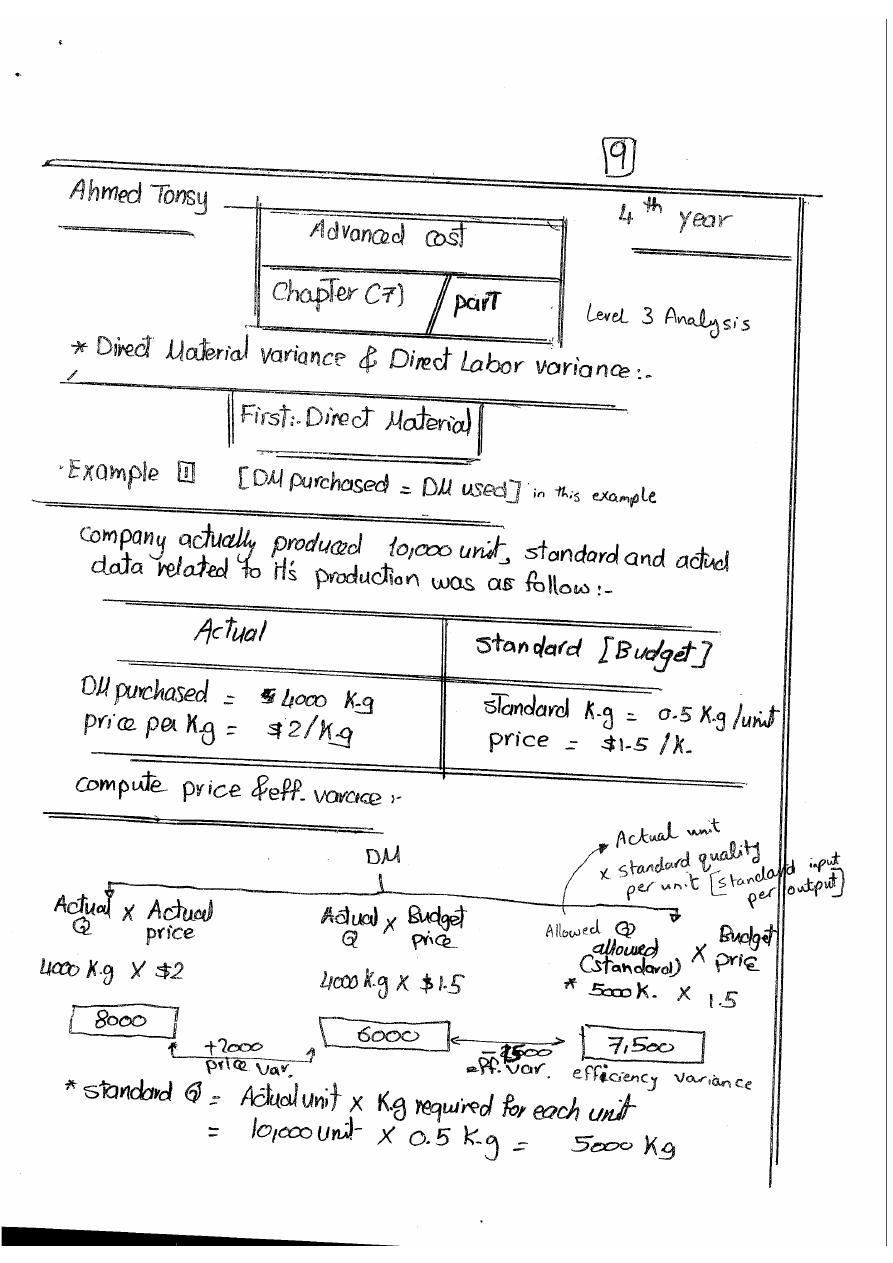 9
Ahmed Tonsy
4th year
Advanced cost
Chapter (7) / part
Level 3 Analysis
* Direct Material variance & Direct Labor variance:-
First:- Direct Material
Example 1 [DM purchased = DM used] in this example
Company actually produced 10,000 unit, standard and actual
data related to it's production was as follow:-
Actual
standard [Budget]
DM purchased = 4000 K.g
price per K.g = $2/K.g
standard K.g = 0.5 K.g/unit
price = $1.5 /K.
compute price & eff. :-
Actual unit
x standard quality
per unit [standard input
per output]
DM
Actual Q x Actual price
Actual Q x Budget price
Allowed Q
allowed (standard) x Budget price
4000 K.g x $2
4000 K.g x $1.5
* 5000 K. x 1.5
8000
6000
7,500
+2000
price var.
eff. var.
efficiency variance
* standard Q = Actual unit x K.g required for each unit
= 10,000 unit x 0.5 K.g = 5000 Kg